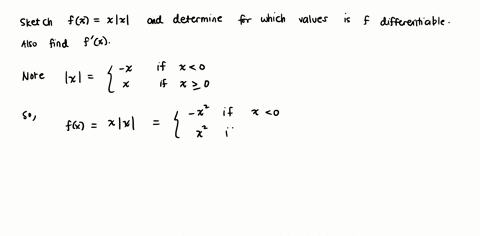 Sketch f(x) = x|x| and determine for which values is f differentiable.
Also find f'(x).
Note |x| = { -x if x < 0
x if x ≥ 0
So, f(x) = x|x| = { -x² if x < 0
x² i